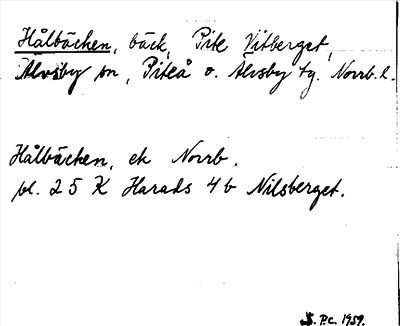 Hålbäcken, bäck, Pite Vitberget,
Älvsby sn, Piteå o. Älvsby tg. Norrb. l.
Hålbäcken, ek Norrb.
bl. 25 K Harads 4 b Nilsberget.
S. P.c. 1959.